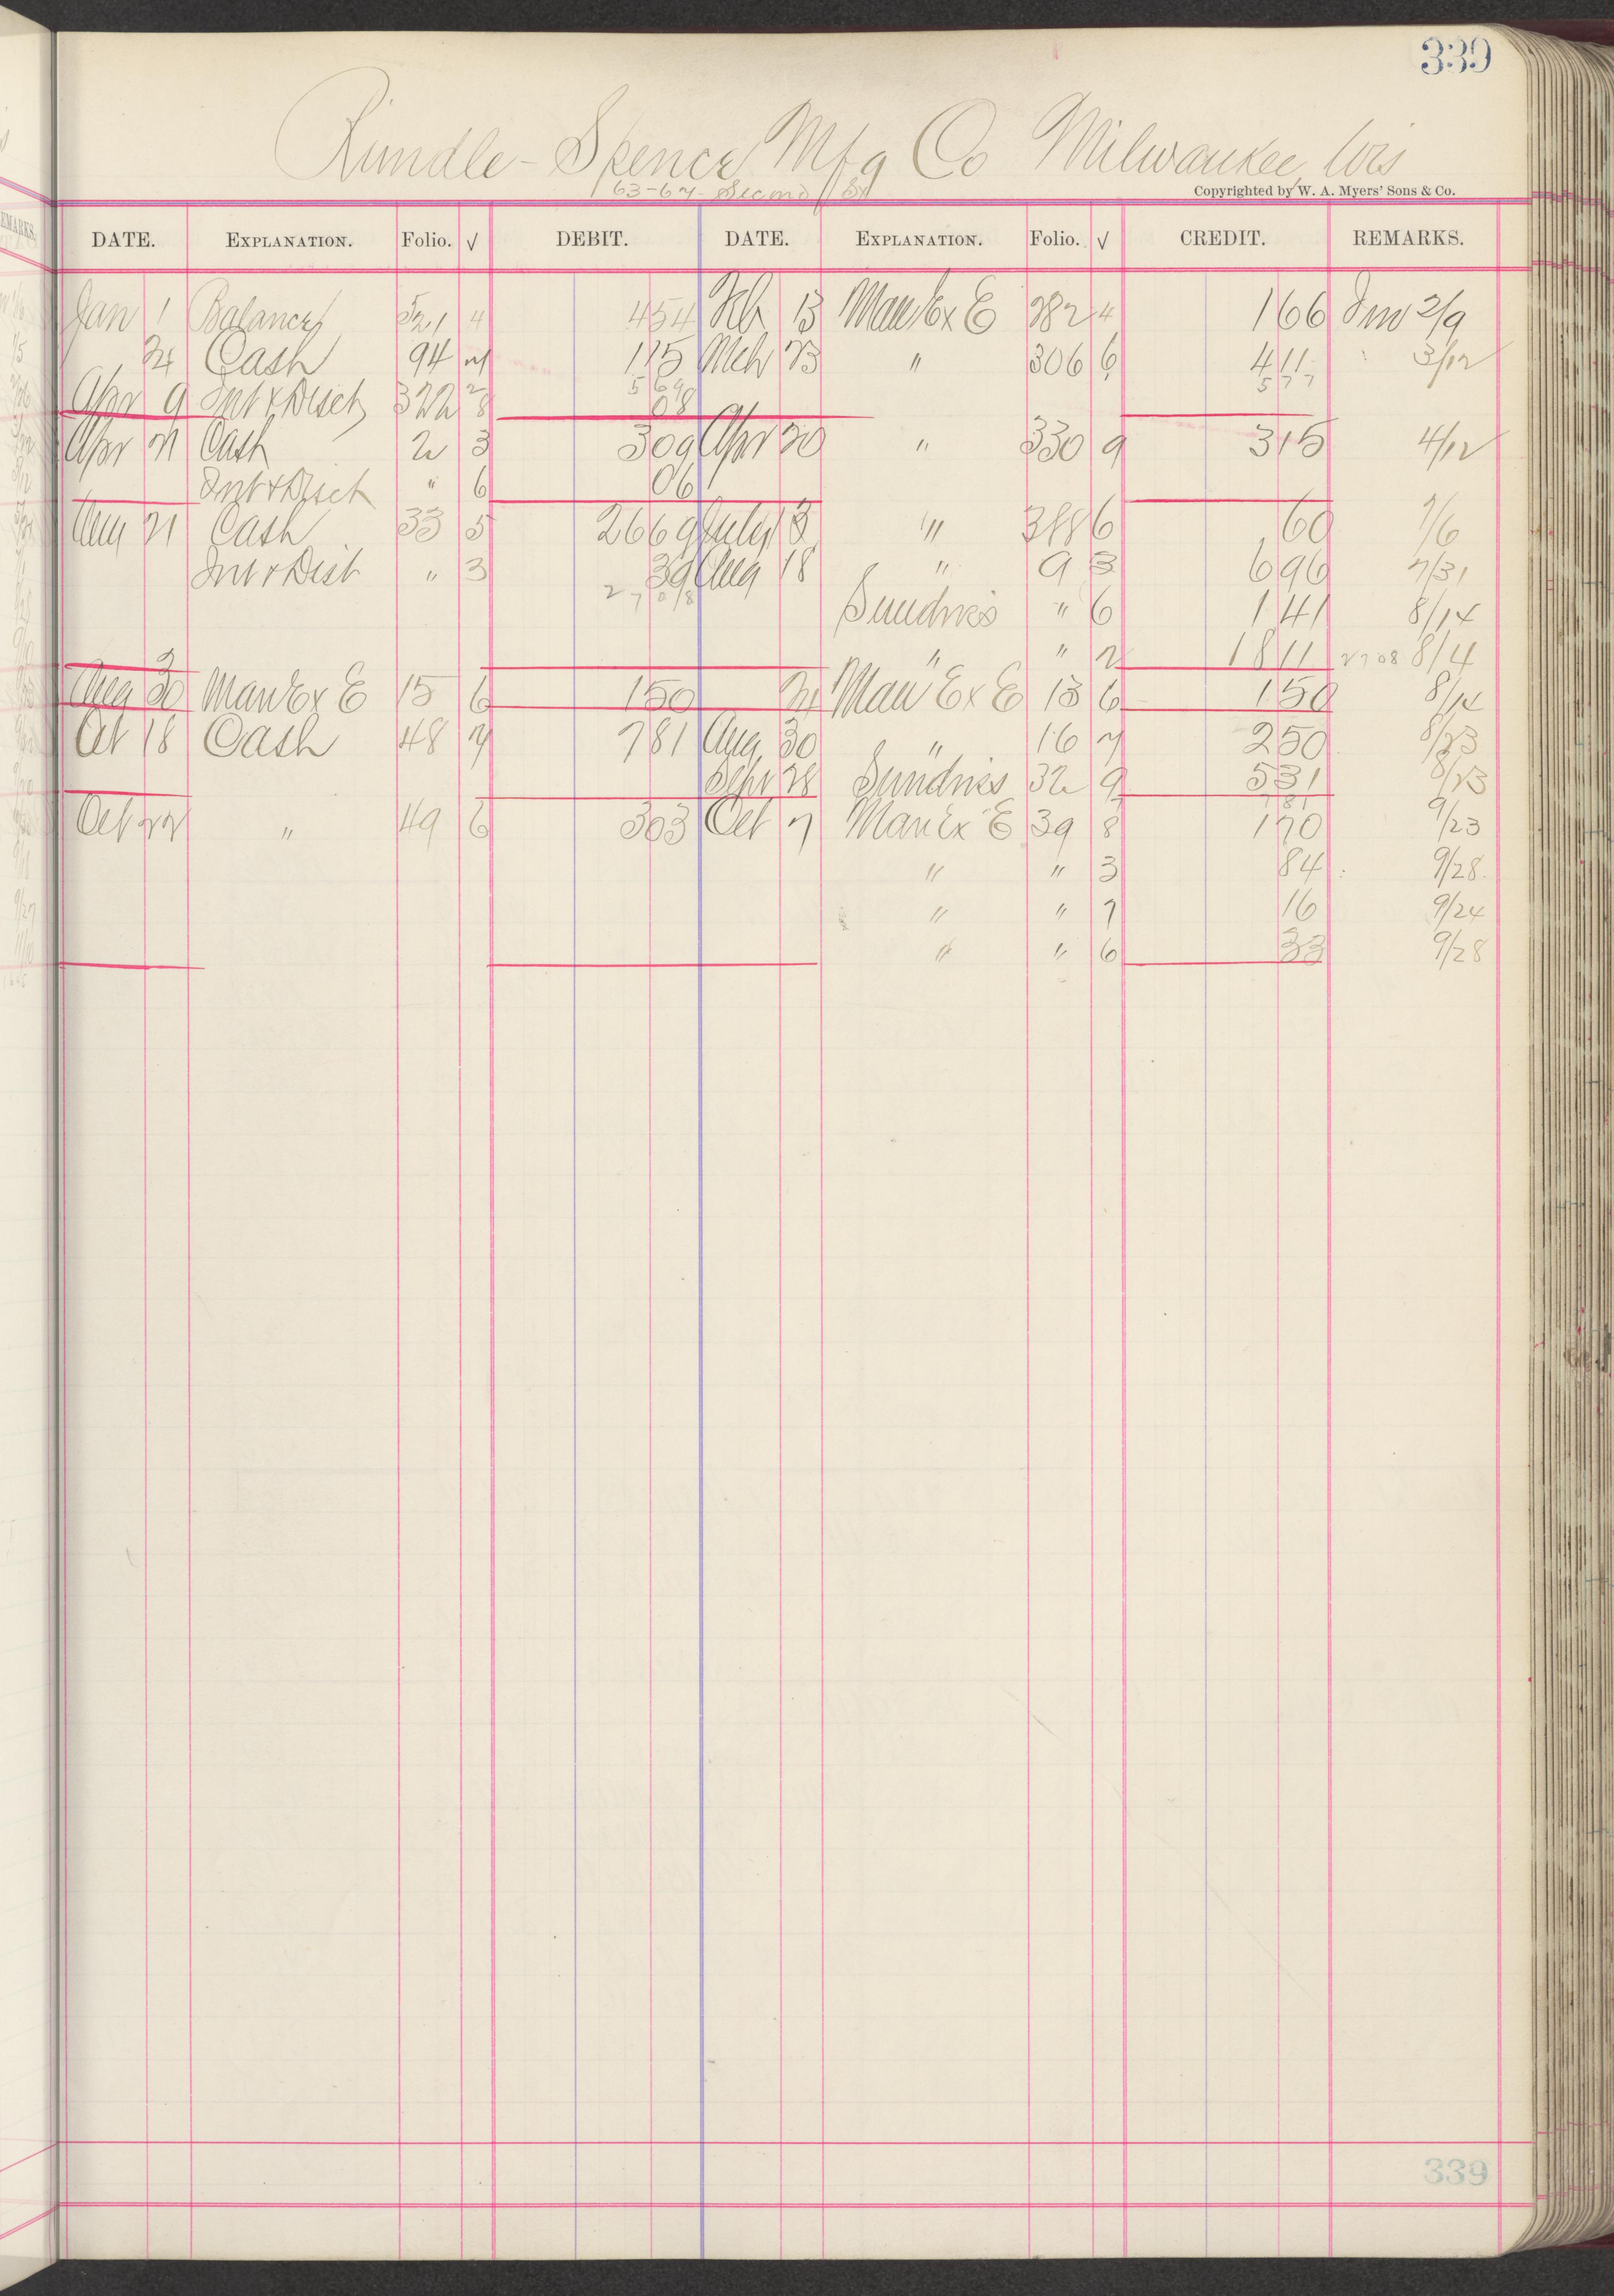 339
Rundle-Spence Mfg Co Milwaukee, Wis
63-67 Second St
Copyrighted by W. A. Myers' Sons & Co.
DATE. EXPLANATION. Folio. √ DEBIT. DATE. EXPLANATION. Folio. √ CREDIT. REMARKS.
Jan 1 Balance 521 4 454 Feb 13 Man Ex E 282 4 166 Inv 2/9
24 Cash 94 7 115 Mch 23 " 306 6 411 3/12
569 577
Apr 9 Int & Disct 322 8 08
Apr 21 Cash 2 3 309 Apr 20 " 330 9 315 4/12
Int & Disct " 6 06
Aug 21 Cash 33 5 2669 July 3 " 388 6 60 7/6
Int & Dist " 3 39 Aug 18 " 9 3 696 7/31
2708 Sundries " 6 141 8/14
" " 2 1811 2708 8/4
Aug 30 Man Ex E 15 6 150 24 Man Ex E 13 6 150 8/14
Oct 18 Cash 48 7 781 Aug 30 " 16 7 250 8/23
Sept 28 Sundries 32 9 531 8/23
781
Oct 22 " 49 6 303 Oct 7 Man Ex E 39 8 170 9/23
" " 3 84 9/28
" " 7 16 9/24
" " 6 33 9/28
339